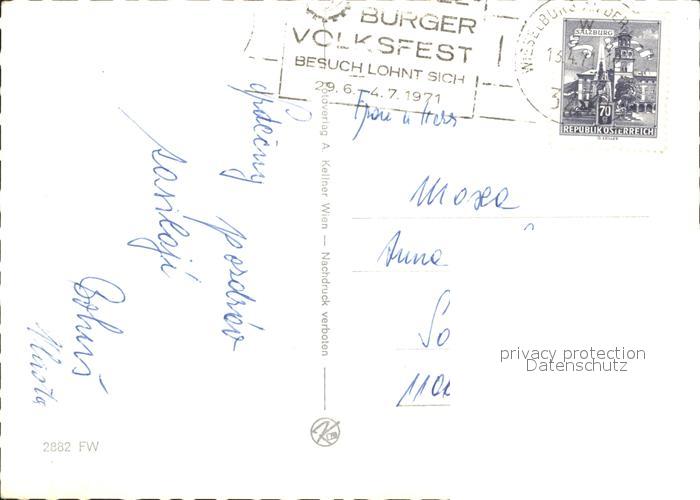 BURGER
VOLKSFEST
BESUCH LOHNT SICH
29. 6. – 4. 7. 1971
SALZBURG
70
REPUBLIK ÖSTERREICH
srdečný pozdrav
zasílají
Bohuš
Vlasta
Fotoverlag A. Kellner Wien — Nachdruck verboten
Frau u Herr
Moxa
Anna
So
110
privacy protection
Datenschutz
2882 FW